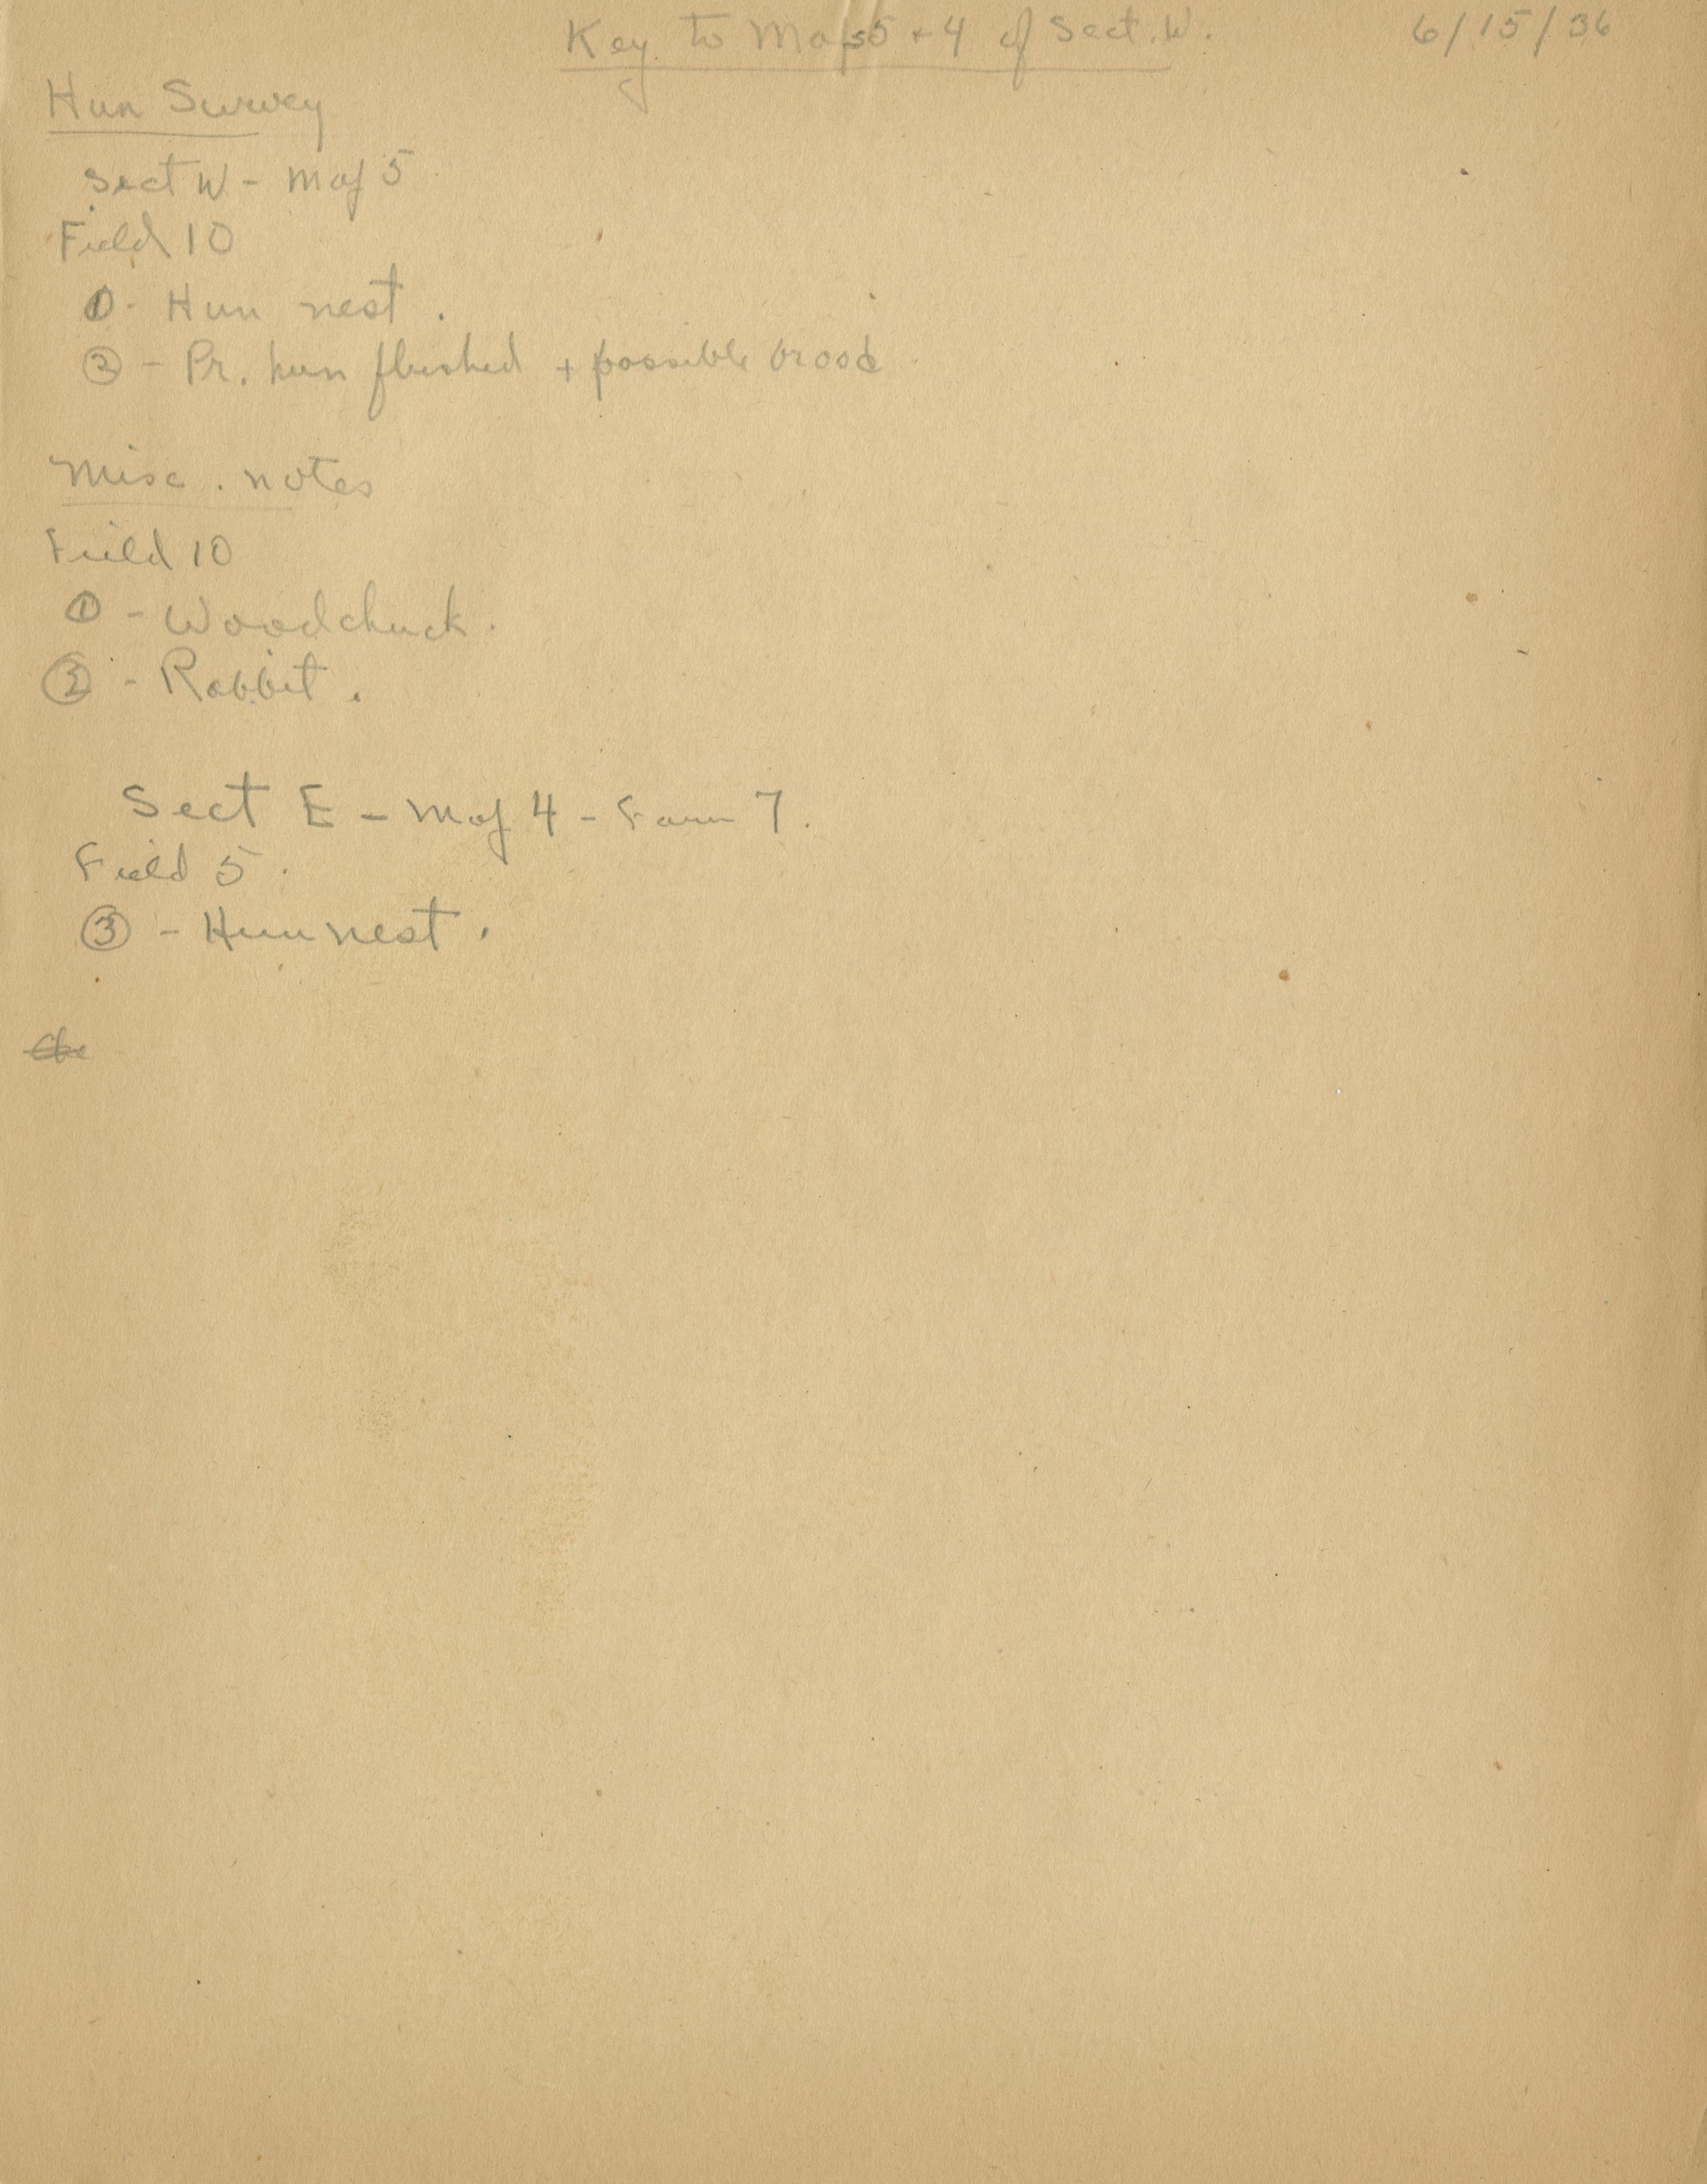 Key to Maps 5 + 4 of Sect. W. 6/15/36
Hun Survey
Sect W - Map 5
Field 10
① - Hun nest.
② - Pr. hun flushed + possible brood
Misc. notes
Field 10
① - Woodchuck.
② - Rabbit.
Sect E - Map 4 - Farm 7.
Field 5.
③ - Hun nest.